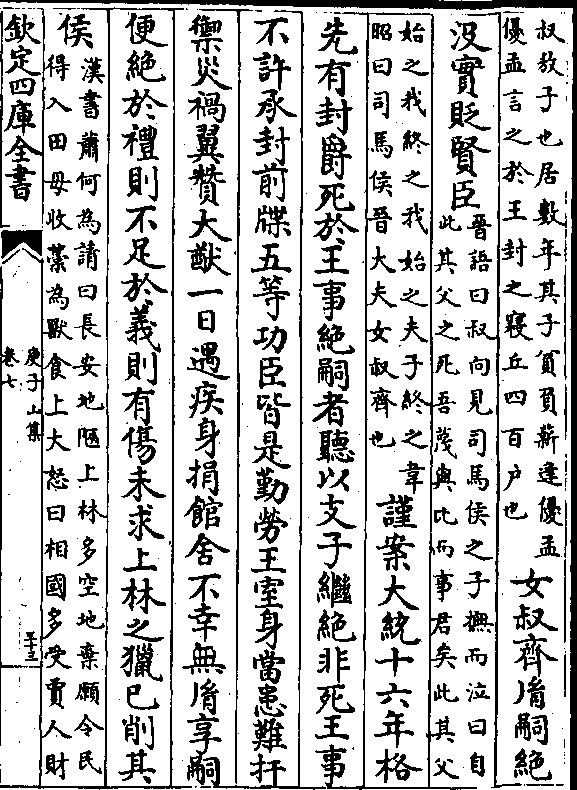 叔敖子也居數年其子貧負薪逢優孟
優孟言之於王封之寢丘四百户也
女叔齊㣧嗣絶
没實貶賢臣
晉語曰叔向見司馬侯之子撫而泣曰自
此其父之死吾蔑與比而事君矣此其父
始之我終之我始之夫子終之韋
昭曰司馬侯晉大夫女叔齊也
謹案大統十六年格
先有封爵死於王事絶嗣者聽以支子繼絶非死王事
不許承封前牒五等功臣皆是勤勞王室身當患難扞
禦災禍翼贊大猷一日遇疾身捐館舍不幸無㣧享嗣
便絶於禮則不足於義則有傷未求上林之獵已削其
侯
漢書蕭何為請曰長安地陿上林多空地棄願令民
得入田毋收藁為獸食上大怒曰相國多受賈人財
欽定四庫全書
庾子山集
卷七